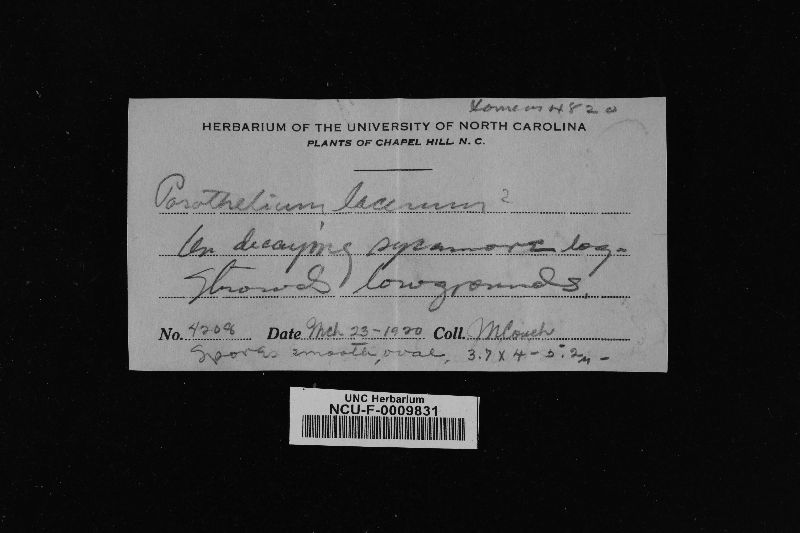 Same as 4820
HERBARIUM OF THE UNIVERSITY OF NORTH CAROLINA
PLANTS OF CHAPEL HILL N. C.
Porothelium lacerum ?
On decaying sycamore log-
Strowd's lowgrounds.
No. 4208 Date Mch 23-1920 Coll. JN Couch
Spores smooth, oval, 3.7 x 4-5.2µ-
UNC Herbarium
NCU-F-0009831